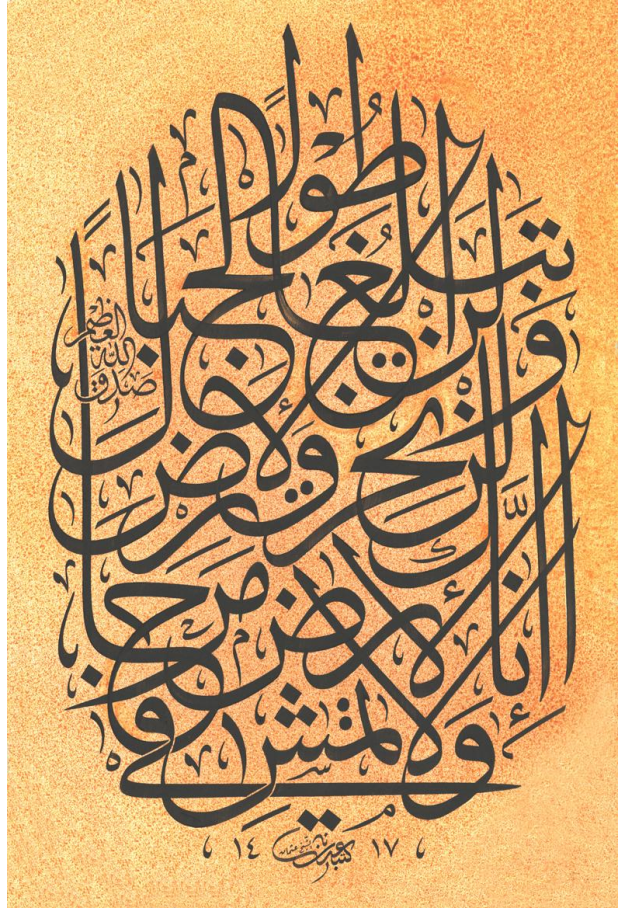 ولا تمش في
الأرض مرحا
إنك لن تخرق الأرض
ولن تبلغ الجبال طولا
صدق الله العظيم
١٤ ١٧